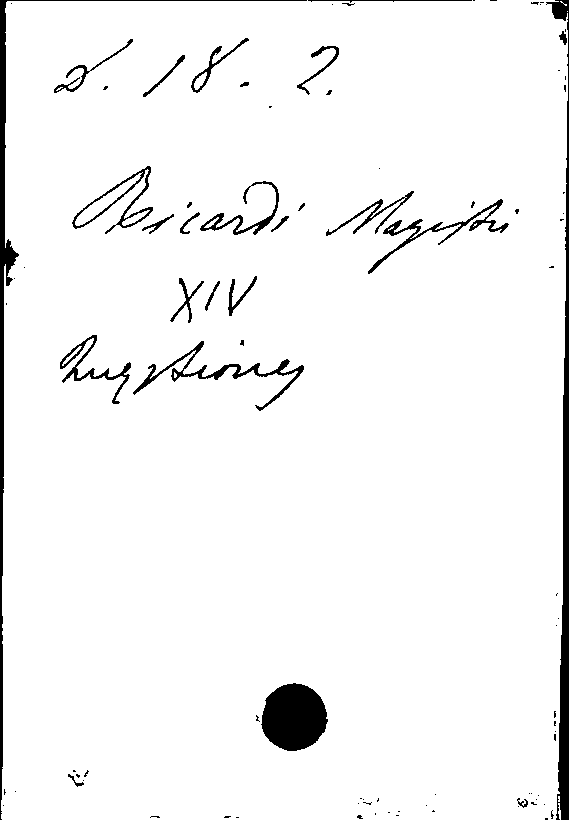 d. 18. 2.
Ricardi Magistri
XIV
Quęstiones